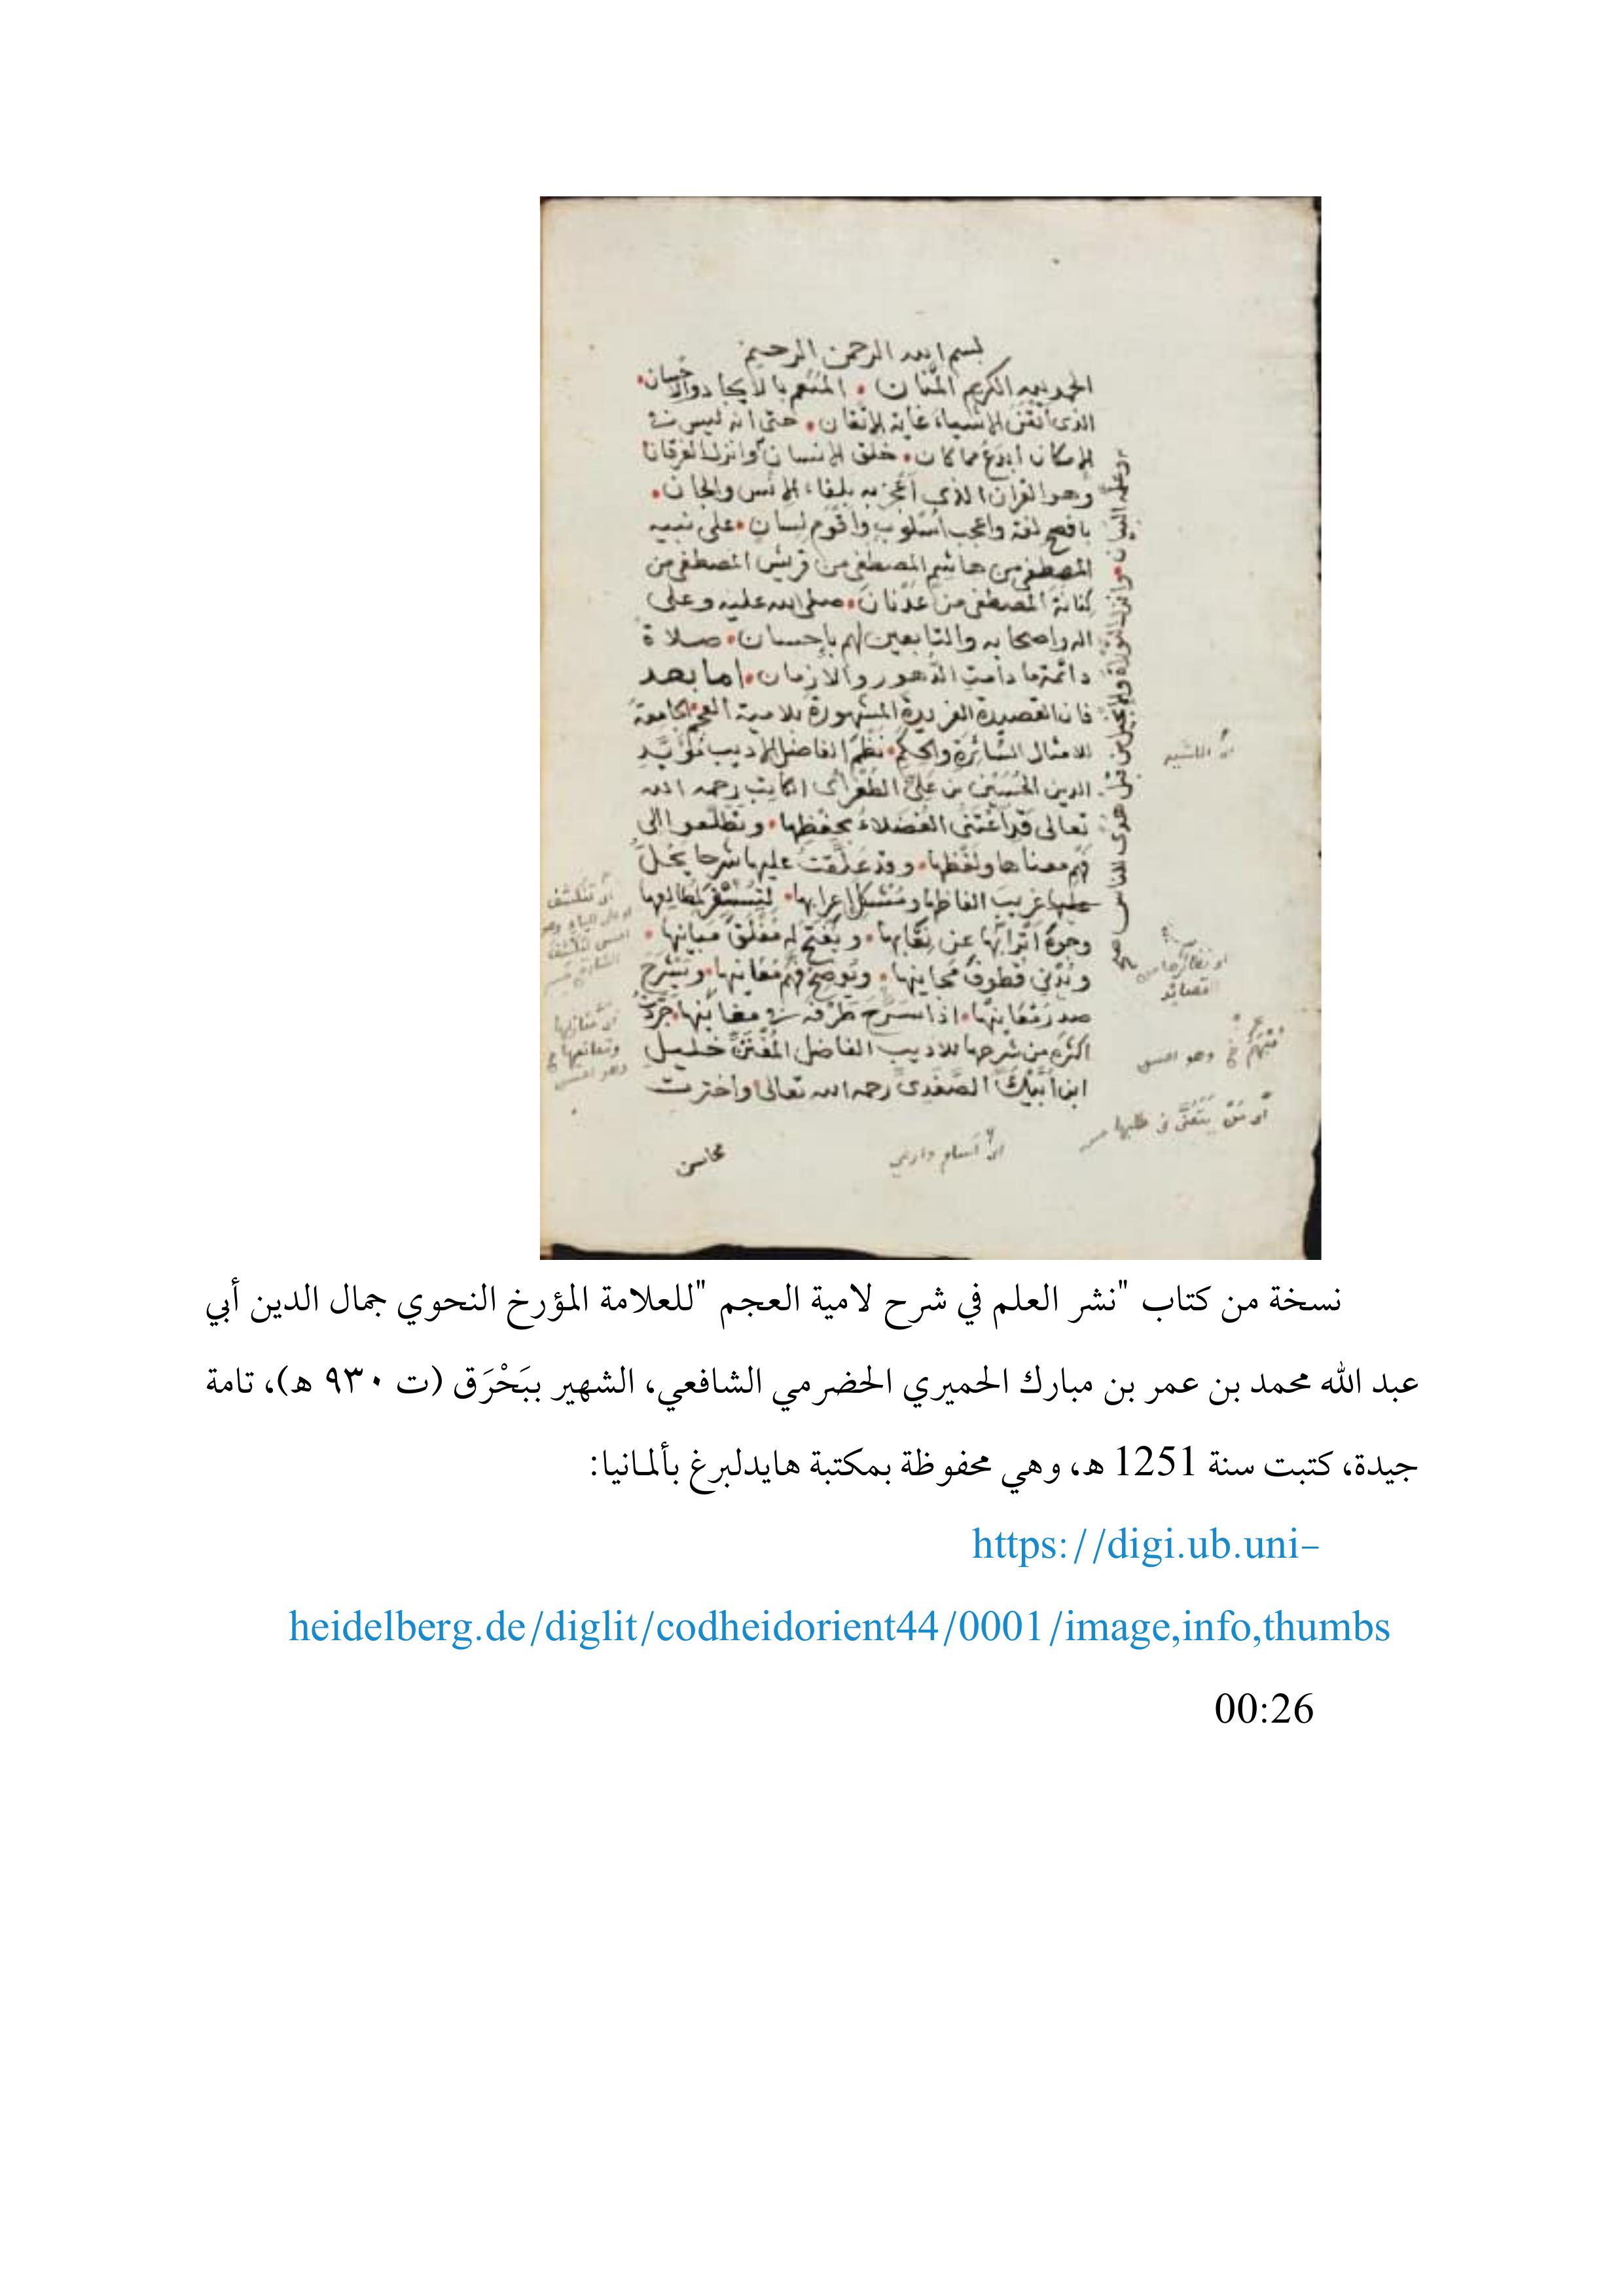 بسم الله الرحمن الرحيم
الحمد لله الكريم المنَّان • المُنعم بالايجاد والاحسان •
الذى اتقن الاشياء غاية الاتقان • حتى انه ليس فى
الامكان ابدع مما كان • خلق الانسان وانزل الفرقانا
وهو القران الذى اعجز به بلغاء الانس والجان •
بافصح لغة واعجب اسلوب واقوم لسان • على نبيه
المصطفى من هاشم المصطفى من قريش المصطفى من
كنانة المصطفى من عدنان • صلى الله عليه وعلى
اله واصحابه والتابعين لهم بإحسان • صلاة
دائمة ما دامت الدهور والازمان • اما بعد
فان القصيدة الفريدة المشهورة بلامية العجم الجامعة
للامثال السَّائرة والحِكَم • نظم الفاضل الاديب مؤيَّد
الدين الحُسَين بن علىّ الطغرائى الكاتب رحمه الله
تعالى قد اعتنى الفضلاء بحفظها • وتطلعوا الى
فهم معناها ولفظها • وقد علَّقت عليها شرحا يحلّ
غريب الفاظها ومشكل اعرابها • لتسفر لمطالعها
وجوه اترابها عن نقابها • ويفتح له مغلق مبانيها •
وتدنى قطوف مجانيها • ويوضح فهم معانيها • ويشرح
صدر مُعانيها • اذا سرّح طرفه فى مغانيها • جرّدت
اكثره من شرحها للاديب الفاضل المُفتنّ خليل
ابن أيبك الصَّفدىّ رحمه الله تعالى واخترت
محاسن
وعلمه البيان • وانزل التوراة والانجيل من قبل هدى للناس صح
وهو احسن
نسخة من كتاب "نشر العلم في شرح لامية العجم "للعلامة المؤرخ النحوي جمال الدين أبي
عبد الله محمد بن عمر بن مبارك الحميري الحضرمي الشافعي، الشهير ببَحْرَق (ت ٩٣٠ هـ)، تامة
جيدة، كتبت سنة 1251 هـ، وهي محفوظة بمكتبة هايدلبرغ بألمانيا:
https://digi.ub.uni-
heidelberg.de/diglit/codheidorient44/0001/image,info,thumbs
00:26